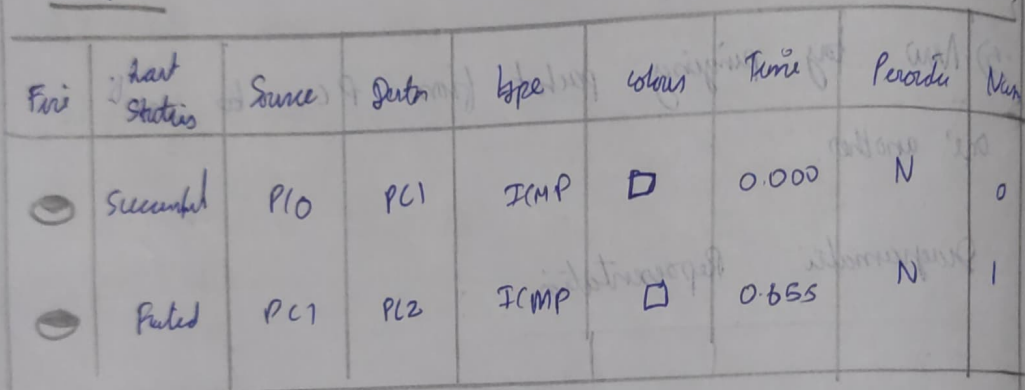 Fire Last Status Source Destn type colour Time Periodic Num
Successful PC0 PC1 ICMP 0.000 N 0
Failed PC1 PC2 ICMP 0.655 N 1